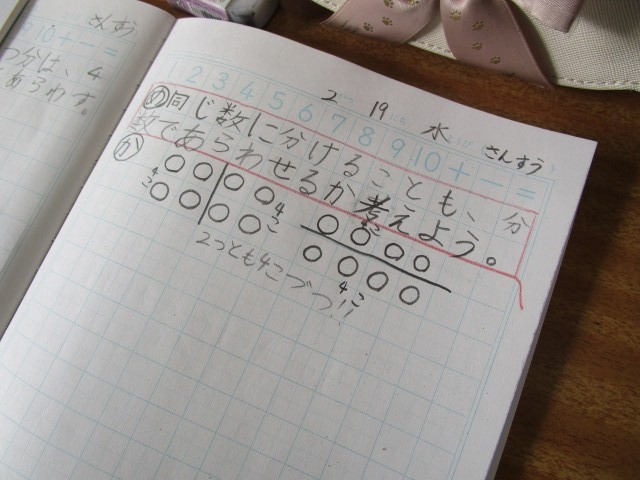 さんすう
10+-=
つ分は、4
あらわす。
2 19 水 さんすう
1 2 3 4 5 6 7 8 9 10 + - =
め 同じ数に分けることも、分
数であらわせるか考えよう。
か
4こ
4こ
4こ
4こ
2つとも4こづつ!!